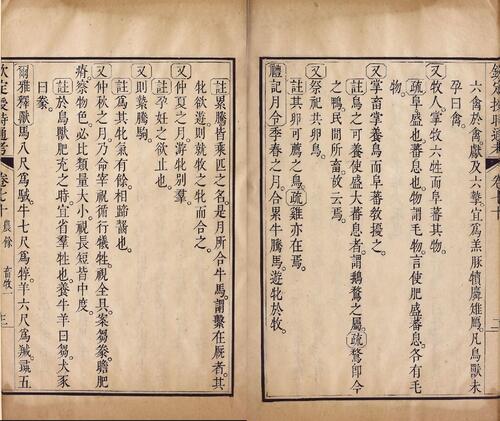 欽定授時通考
卷七十
二
六禽於禽獻及六摯宜爲羔豚犢麛雉鴈凡鳥獸未
孕曰禽
又牧人掌牧六牲而阜蕃其物
疏阜盛也蕃息也物謂毛物言使肥盛蕃息各有毛
物
又掌畜掌養鳥而阜蕃教擾之
註鳥之可養使盛大蕃息者謂鵝鶩之屬疏鶩卽今
之鴨民間所畜故云焉
又祭祀共卵鳥
註其卵可薦之鳥疏雞亦在焉
禮記月令季春之月合累牛騰馬遊牝於牧
註累騰皆乘匹之名是月所合牛馬謂繫在厩者其
牝欲遊則就牧之牡而合之
又仲夏之月游牝別羣
註孕妊之欲止也
又則縶騰駒
註爲其牡氣有餘相蹄齧也
又仲秋之月乃命宰祝循行犧牲視全具案芻豢瞻肥
瘠察物色必比類量大小視長短皆中度
註於鳥獸肥充之時宜省羣牲也養牛羊曰芻犬豕
曰豢
爾雅釋獸馬八尺爲駥牛七尺爲犉羊六尺爲羬彘五
欽定授時通考
卷七十
農餘
畜牧一
三